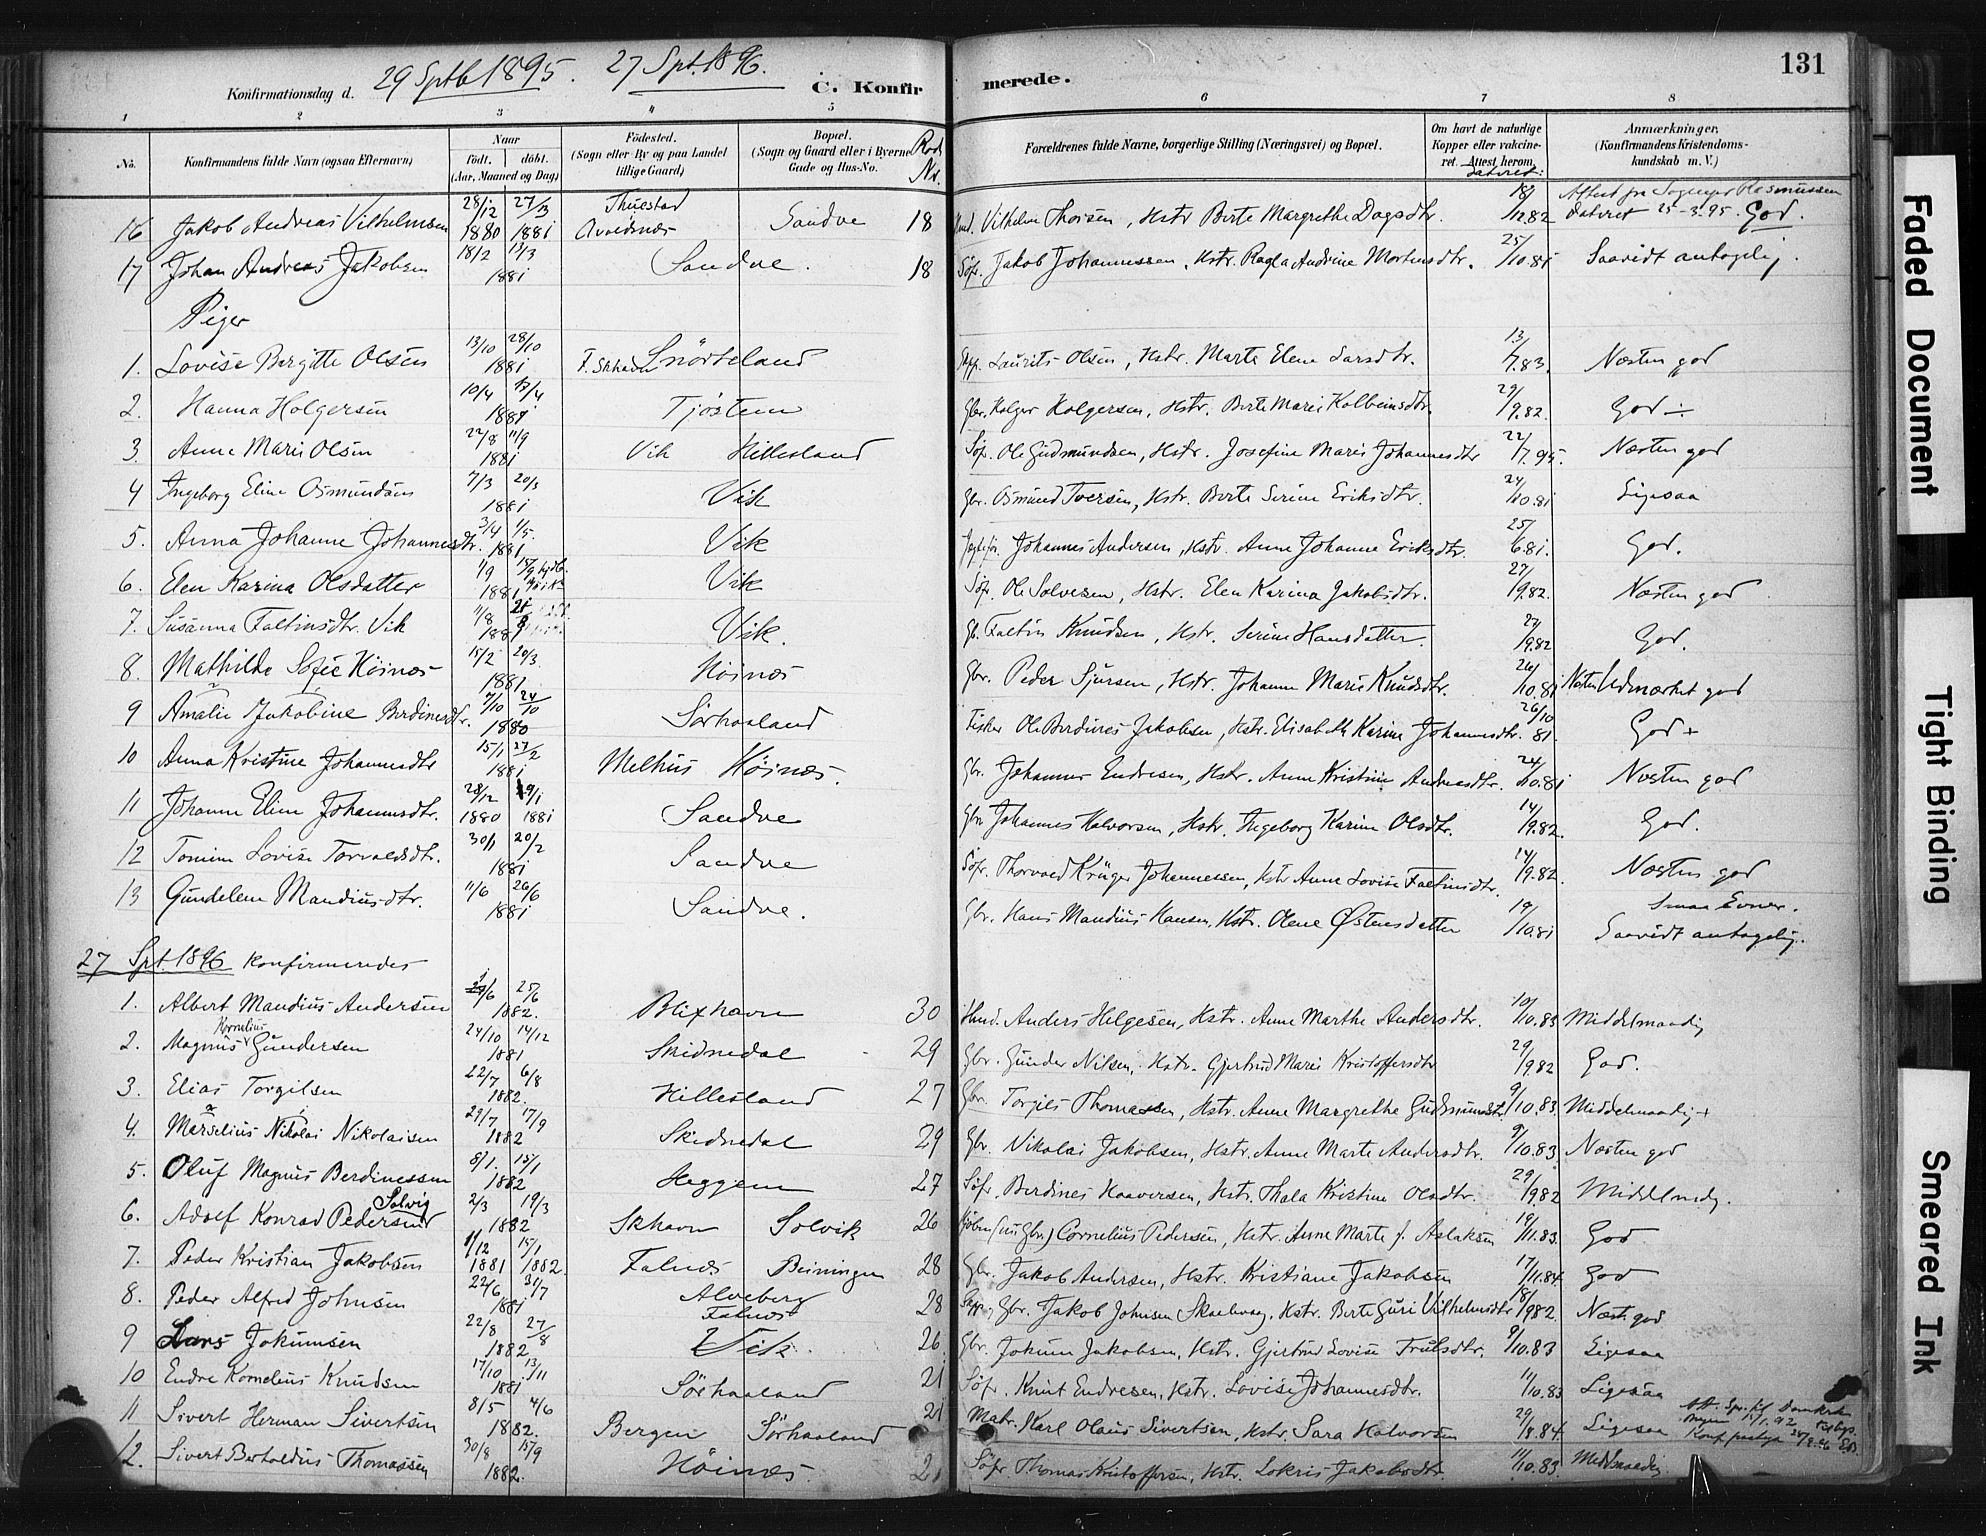 131
Konfirmationsdag d. 29 Septb 1895. 27 Spt. 1896. C. Konfirmerede.
1 2 3 4 5 6 7 8
No. Konfirmandens fulde Navn (ogsaa Efternavn) Naar født. døbt. (Aar, Maaned og Dag) Fødested. (Sogn eller By og paa Landet tillige Gaard) Bopæl. (Sogn og Gaard eller i Byerne Gade og Hus-No. Forældrenes fulde Navne, borgerlige Stilling (Næringsvei) og Bopæl. Om havt de naturlige Kopper eller vakcineret. Attest herom dateret: Anmærkninger. (Konfirmandens Kristendomskundskab m. V.)
16 Jakob Andreas Vilhelmsen 28/12 1880 27/3 1881 Thuestad Avaldsnæs Sandve 18 Vilhelm Thorsen, Hstr Berte Margrethe Dagsdtr. 18/12 82 Attest fra Sognepr Rasmussen dateret 25-3-95. God.
17 Johan Andreas Jakobsen 18/2 13/3 1881 Sandve. 18 Søfr. Jakob Johannessen, Hstr. Ragla Andrine Mortensdtr. 25/10.81 Saavidt antagelig.
Piger
1. Lovise Bergitte Olsen 13/10 28/10 1881 F. Skhavn Snørteland Laurits Olsen, Hstr. Marta Elene Larsdtr. 13/7.83. Næsten god
2. Hanna Holgersen 10/4 1881 Tjøstem Gbr. Holger Holgersen, Hstr. Berte Marie Kolbeinsdtr. 29/9.82. God ÷
3. Anne Marie Olsen 22/8 11/9 1881 Vik Hillesland Søfr. Ole Gudmundsen, Hstr. Josefine Marie Johannesdtr 22/7.95. Næsten god
4 Ingeborg Eline Osmundsen 7/3 20/3 1881 Vik Gbr. Osmund Iversen, Hstr. Berte Serine Eriksdtr. 24/10.81 Ligesaa
5. Anna Johanne Johannesdtr. 3/4 1/5. 1881 Vik Johannes Andersen, Hstr. Anne Johanne Eriksdtr. 25/6.81. God.
6. Elen Karina Olsdatter 1/9 1881 Vik Søfr. Ole Solvesen, Hstr. Elen Karina Jakobsdtr. 27/9.82. Næsten god
7. Susanna Faltinsdtr. Vik 11/8 1881 Vik. Gb. Faltin Knudsen, Hstr. Serine Hansdatter 27/9.82 God.
8. Mathilde Sofie Høines 15/2 20/3. 1881 Høines Gbr. Peder Sjursen, Hstr. Johanne Marie Knudsdtr. 26/10.81 Næsten Udmærket god
9 Amalie Jakobine Berdinesdtr. 7/10 24/10 1880 Sørhaaland Fisker Ole Berdines Jakobsen, Hstr. Elisabeth Karine Johannesdtr. 26/10 81. God +
10 Anna Kristine Johannesdtr 15/1 27/2 1881 Melhus Høines. Gbr. Johannes Endresen, Hstr. Anne Kristine Andreasdtr. 24/10.81 Næsten god
11 Johanne Eline Johannesdtr. 28/12 1880 9/1 1881 Sandve Gbr. Johannes Halvorsen, Hstr. Ingeborg Karine Olsdtr. 14/9.82. God.
12 Tomine Lovise Torvaldsdtr. 30/1 20/2 1881 Sandve Søfr. Thorvald Krüger Johannessen, Hstr Anne Lovise Faltinsdtr. 14/9.82. Næsten god
13 Gundelene Mandiusdtr. 11/6 26/6 1881 Sandve. Gbr. Hans Mandius Hansen, Hstr. Olene Østensdatter 19/10.81 Smaa Evner. Saavidt antagelig.
27 Spt. 1896 konfirmeredes
1. Albert Mandius Andersen 25/6 1882. Blixhavn 30 Hmd. Anders Helgesen, Hstr. Anne Marthe Andersdtr. 10/10.83 Middelmaadig
2. Magnus Kornelius Gundersen 24/10 14/12 1881 Skidnedal 29 Gbr. Gunder Nilsen, Hstr. Gjertrud Marie Kristoffersdtr 29/9.82 God.
3. Elias Torgilsen 22/7 6/8 1882. Hillesland 27 Gbr. Torgils Thomassen, Hstr. Anne Margrethe Gudmundsdtr. 9/10.83. Middelmaadig +
4. Marselius Nikolai Nikolaisen 29/7 17/9 1882 Skidnedal 29 Gbr. Nikolai Jakobsen, Hstr. Anne Marte Andersdtr. 9/10.83. Næsten god
5. Oluf Magnus Berdinessen 8/1. 15/1 1882 Heggem 27 Søfr. Berdines Haaversen, Hstr. Thala Kristine Olsdtr. 29/9.82
6. Adolf Konrad Pedersen Solvig 2/3 19/3 1882 Skhavn Solvik 26 Cornelius Pedersen, Hstr. Anne Marte f. Aslaksen 19/11.83. God
7. Peder Kristian Jakobsen 11/12 1881 15/1 1882. Falnes Beiningen 28 Gbr. Jakob Andersen, Hstr. Kristiane Jakobsen 17/11.84. God
8. Peder Alfred Johnsen 22/6 31/7 1881 Alveberg Falnes 28 Gbr. Jakob Johnsen Skaelvag, Hstr. Berte Guri Vilhelmsdtr 18/9 82. Næst god
9 Lars Jokumsen 22/8 27/8 1882 Vik. 26 Gbr. Jokum Jakobsen, Hstr. Gjertrud Lovise 9/10.83 Ligesaa
10 Endre Kornelius Knudsen 17/10 13/11 1881 Sørhaaland 21 Søfr. Knut Endresen, Hstr. Lovise Johannesdtr. 11/10.83 Ligesaa
11 Sivert Herman Sivertsen 8/5 4/6 1882. Bergen Sørhaaland 21 Matr. Karl Olaus Sivertsen, Hstr. Sara Halvorsen 29/8.84. Ligesaa
12. Sivert Bertoldus Thomassen 30/8 15/9 1882. Høines. 21 Søfr Thomas Kristoffersen, Hstr. Lokris Jakobsdtr 11/10.83.
Faded Document
Tight Binding
Smeared Ink